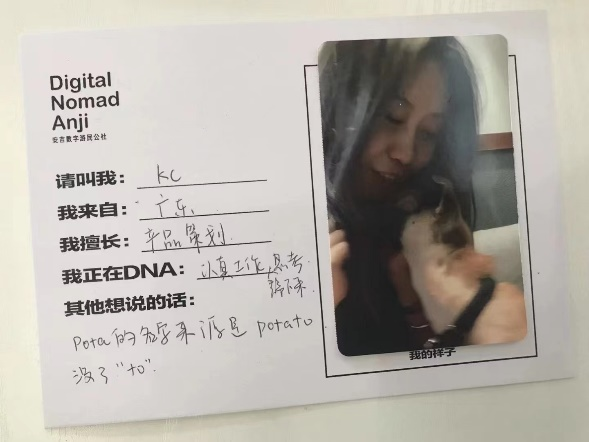 Digital
Nomad
Anji
安吉数字游民公社
请叫我： KC
我来自： 广东
我擅长： 产品策划
我正在DNA： 认真工作，思考
其他想说的话：
Pota的名字来源是 potato
没了“to”.
我的样子